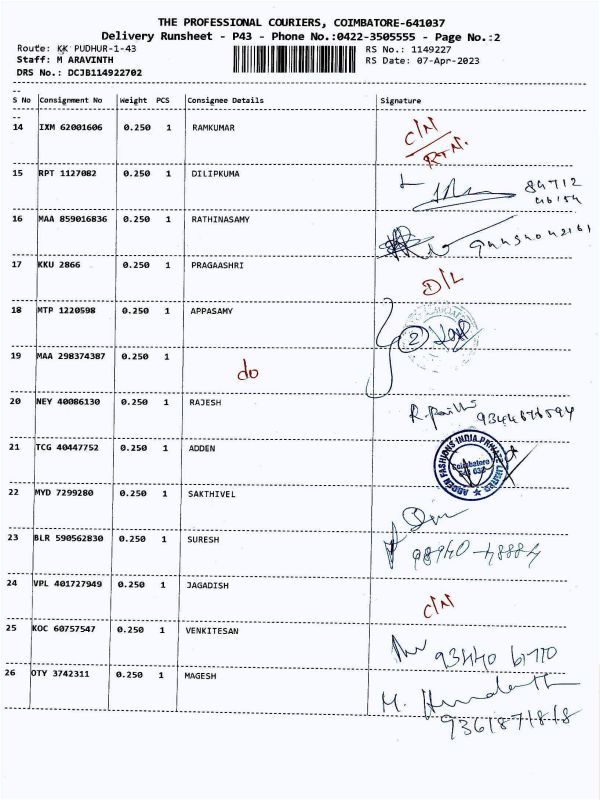 THE PROFESSIONAL COURIERS, COIMBATORE-641037
Delivery Runsheet - P43 - Phone No.:0422-3505555 - Page No.:2
Route: KK PUDHUR-1-43 RS No.: 1149227
Staff: M ARAVINTH RS Date: 07-Apr-2023
DRS No.: DCJB114922702
S No Consignment No Weight PCS Consignee Details Signature
14 IXM 62001606 0.250 1 RAMKUMAR C/N
RTN.
15 RPT 1127082 0.250 1 DILIPKUMA
16 MAA 859016836 0.250 1 RATHINASAMY
17 KKU 2866 0.250 1 PRAGAASHRI D/L
18 MTP 1220598 0.250 1 APPASAMY 2
19 MAA 298374387 0.250 1 do
20 NEY 40086130 0.250 1 RAJESH 9344676594
21 TCG 40447752 0.250 1 ADDEN ADDEN FASHIONS INDIA PRIVATE LIMITED Coimbatore
22 MYD 7299280 0.250 1 SAKTHIVEL
23 BLR 590562830 0.250 1 SURESH
24 VPL 401727949 0.250 1 JAGADISH C/N
25 KOC 60757547 0.250 1 VENKITESAN
26 OTY 3742311 0.250 1 MAGESH
9361871818